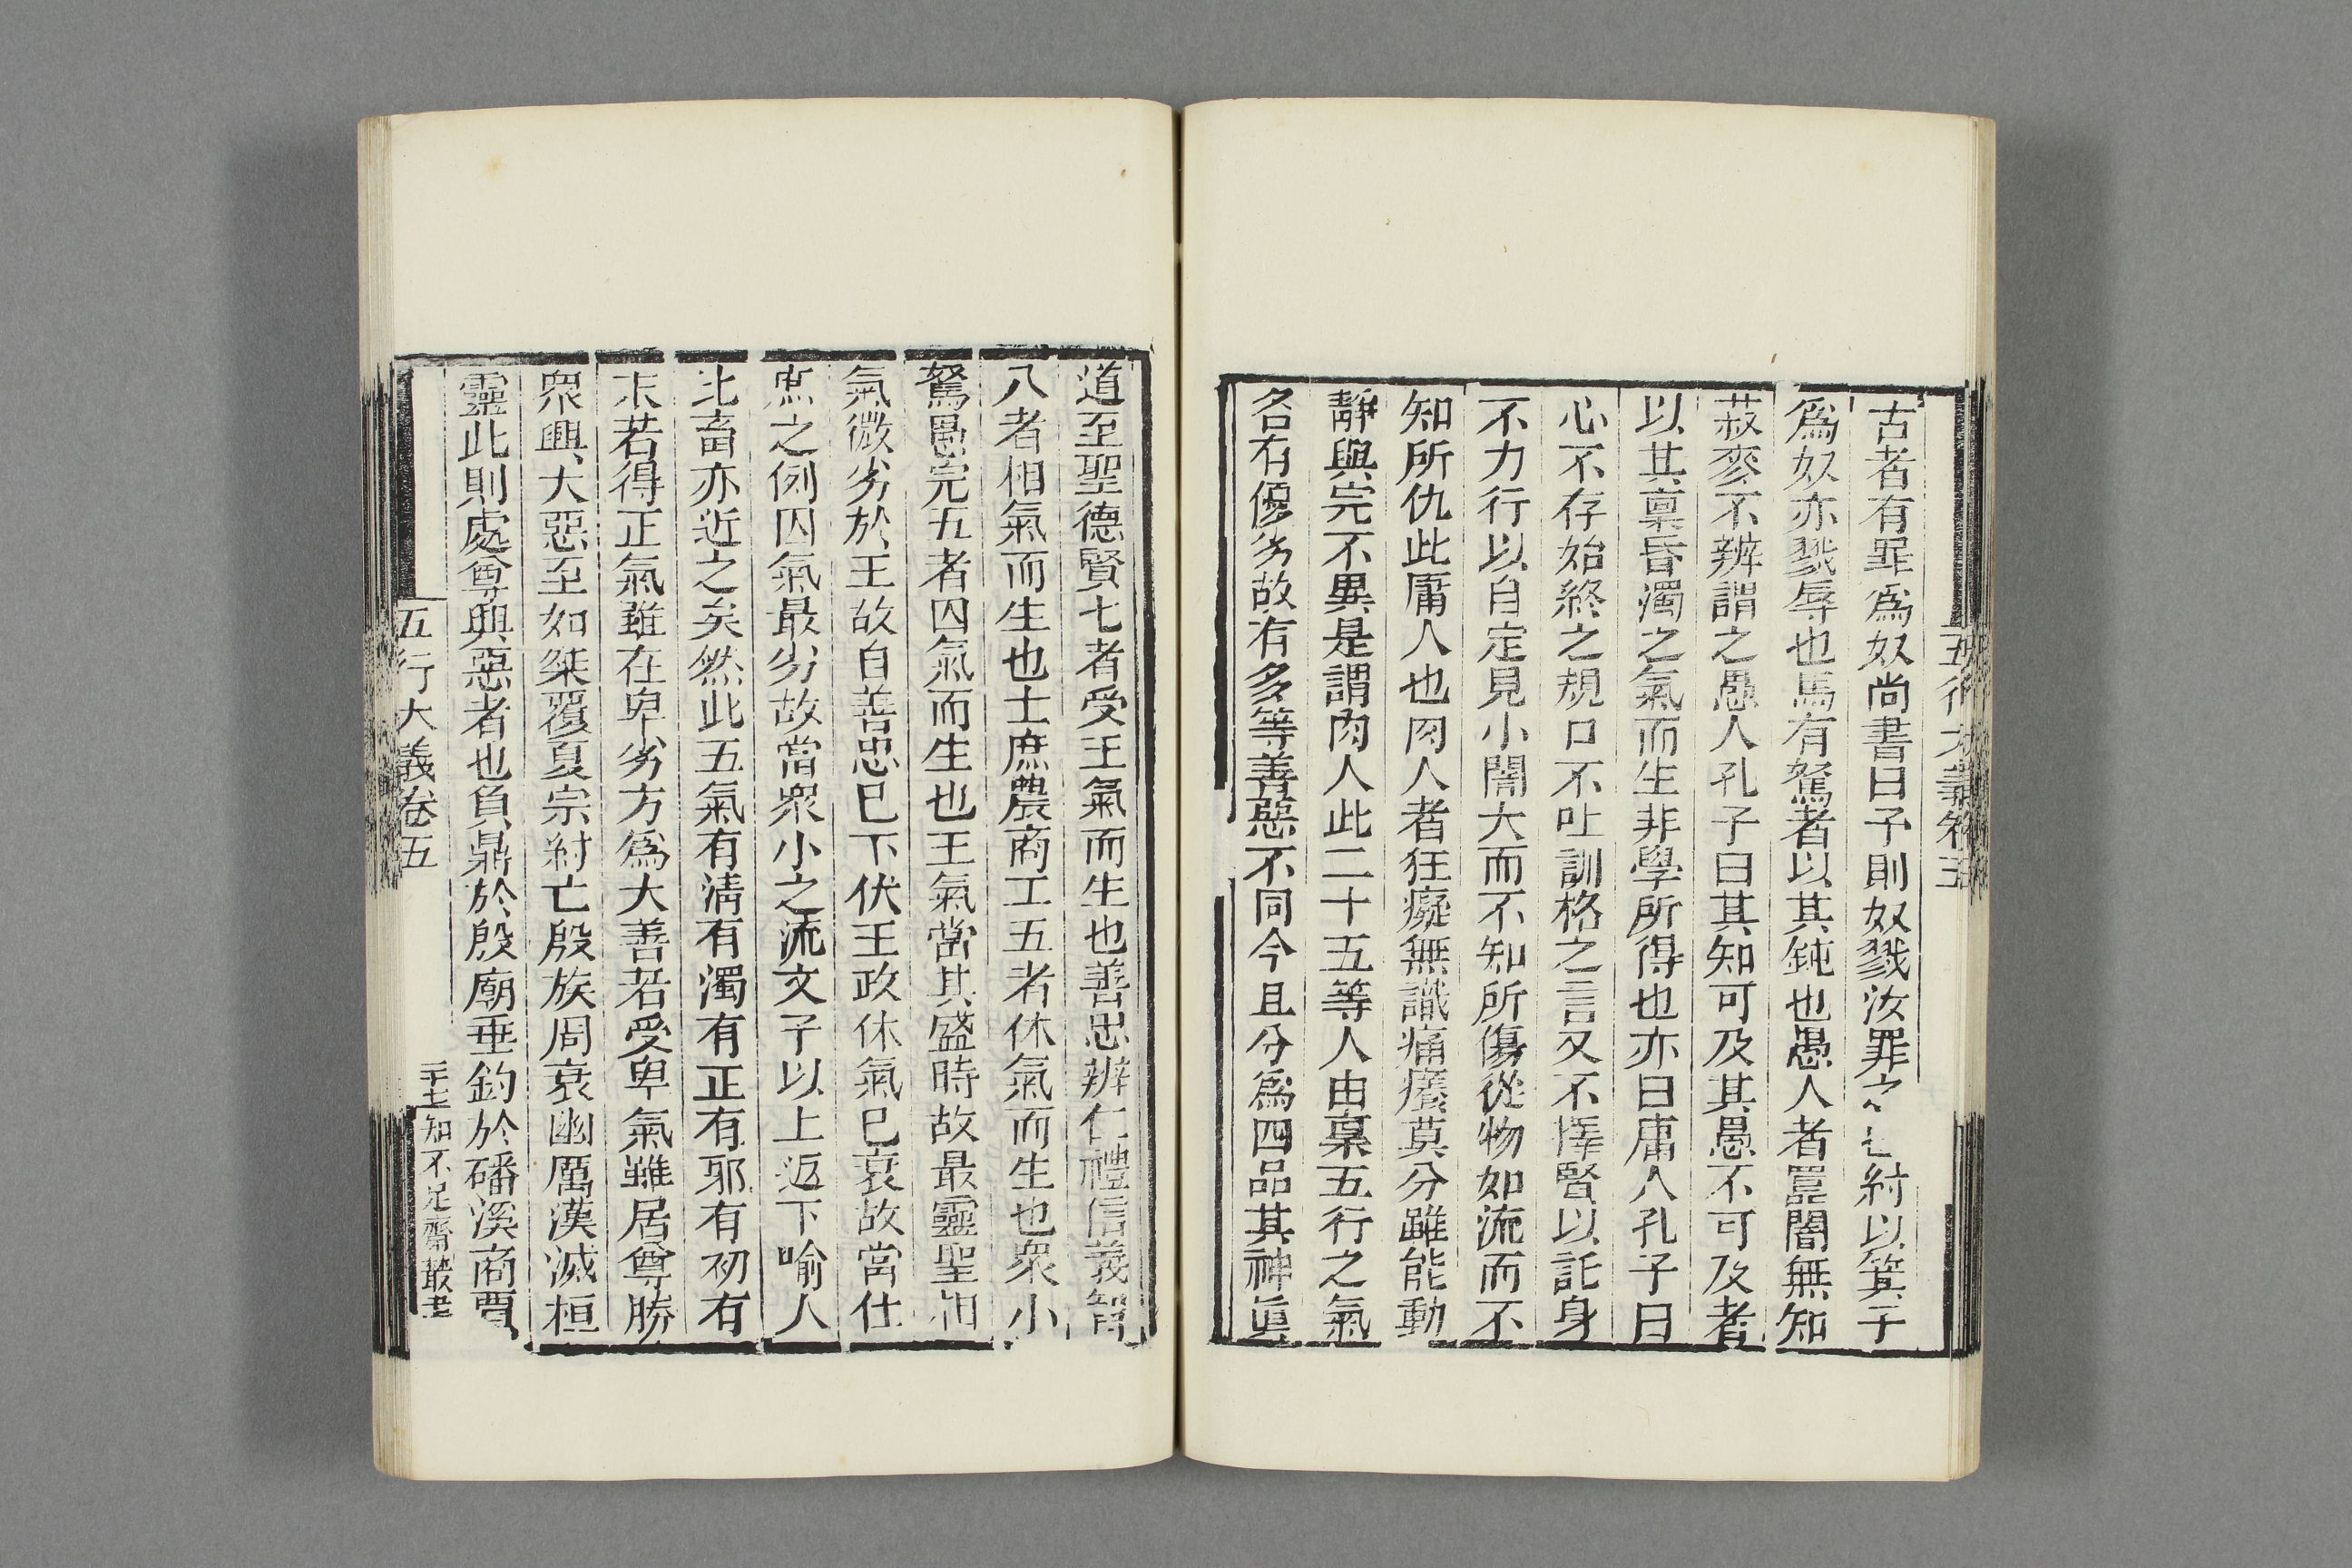 古者有罪爲奴尚書曰予則奴戮汝罪之紂以箕子
爲奴亦戮辱也馬有駑者以其鈍也愚人者嚚闇無知
菽麥不辨謂之愚人孔子曰其知可及其愚不可及者
以其稟昏濁之氣而生非學所得也亦曰庸人孔子曰
心不存始終之規口不吐訓格之言又不擇賢以託身
不力行以自定見小闇大而不知所傷從物如流而不
知所仇此庸人也肉人者狂癡無識痛癢莫分雖能動
靜與完不異是謂肉人此二十五等人由稟五行之氣
名有優劣故有多等善惡不同今且分爲四品其神眞
道至聖德賢七者受王氣而生也善忠辨仁禮信義智
八者相氣而生也士庶農商工五者休氣而生也衆小
駑愚完五者囚氣而生也王氣當其盛時故最靈聖相
氣微劣於王故自善忠已下伏王政休氣已衰故當仕
庶之例囚氣最劣故當衆小之流文子以上返下喻人
北畜亦近之矣然此五氣有淸有濁有正有邪有初有
末若得正氣雖在卑劣方爲大善若受卑氣雖居尊勝
衆興大惡至如桀覆夏宗紂亡殷族周衰幽厲漢滅桓
靈此則處尊與惡者也負鼎於殷廟垂釣於磻溪商賈
五行大義卷五
知不足齋叢書